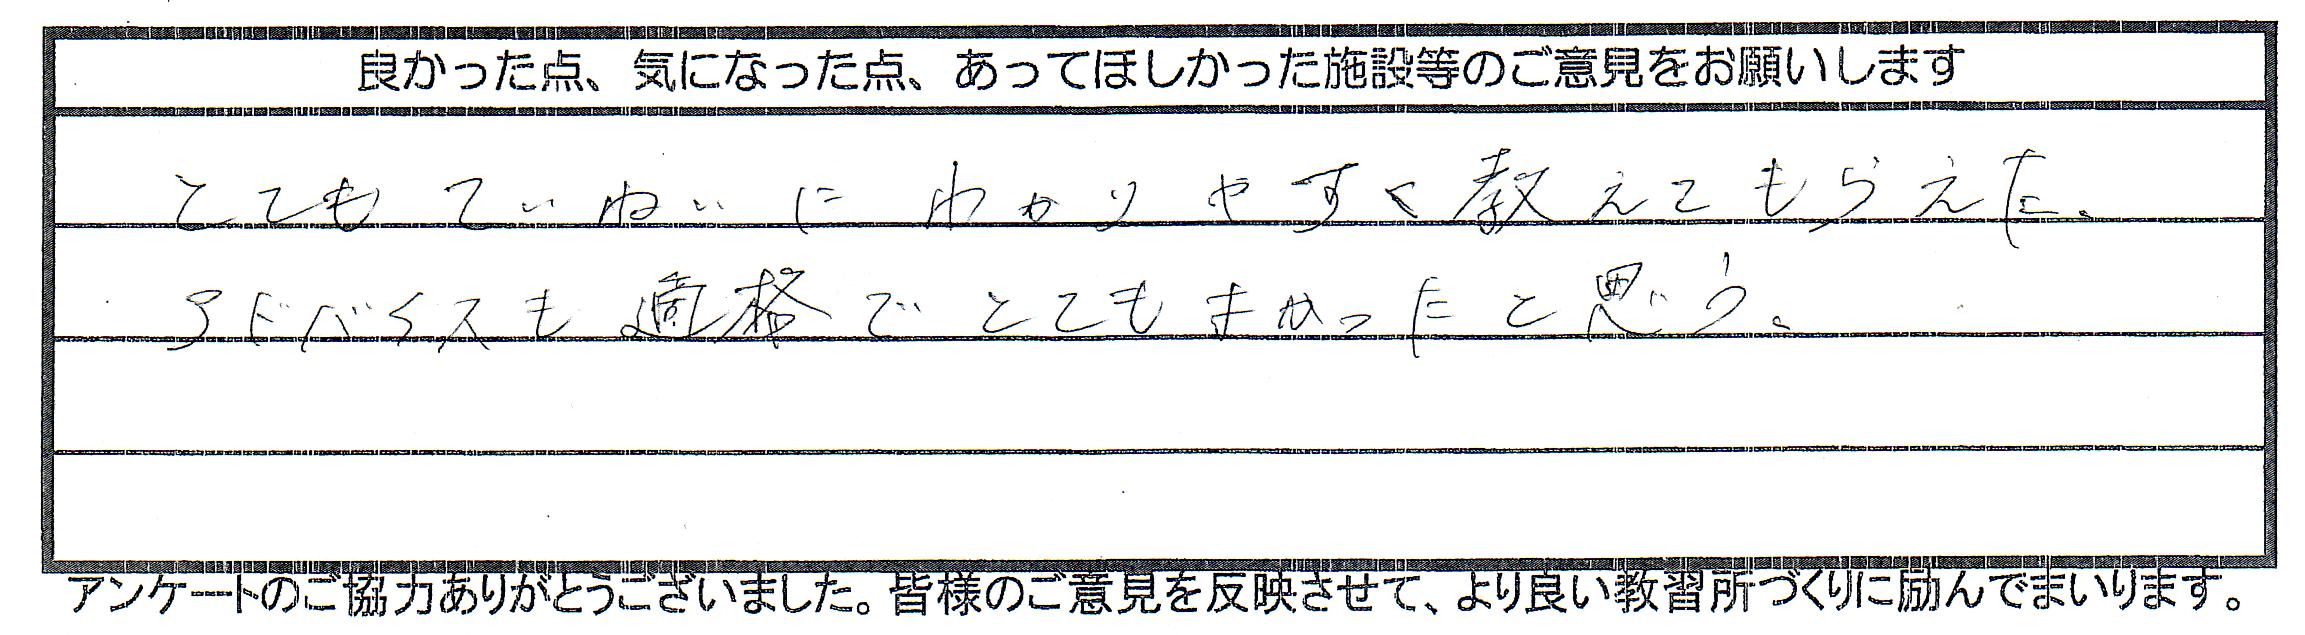 良かった点、気になった点、あってほしかった施設等のご意見をお願いします
とてもていねいにわかりやすく教えてもらえた。
アドバイスも適格でとてもよかったと思う。
アンケートのご協力ありがとうございました。皆様のご意見を反映させて、より良い教習所づくりに励んでまいります。